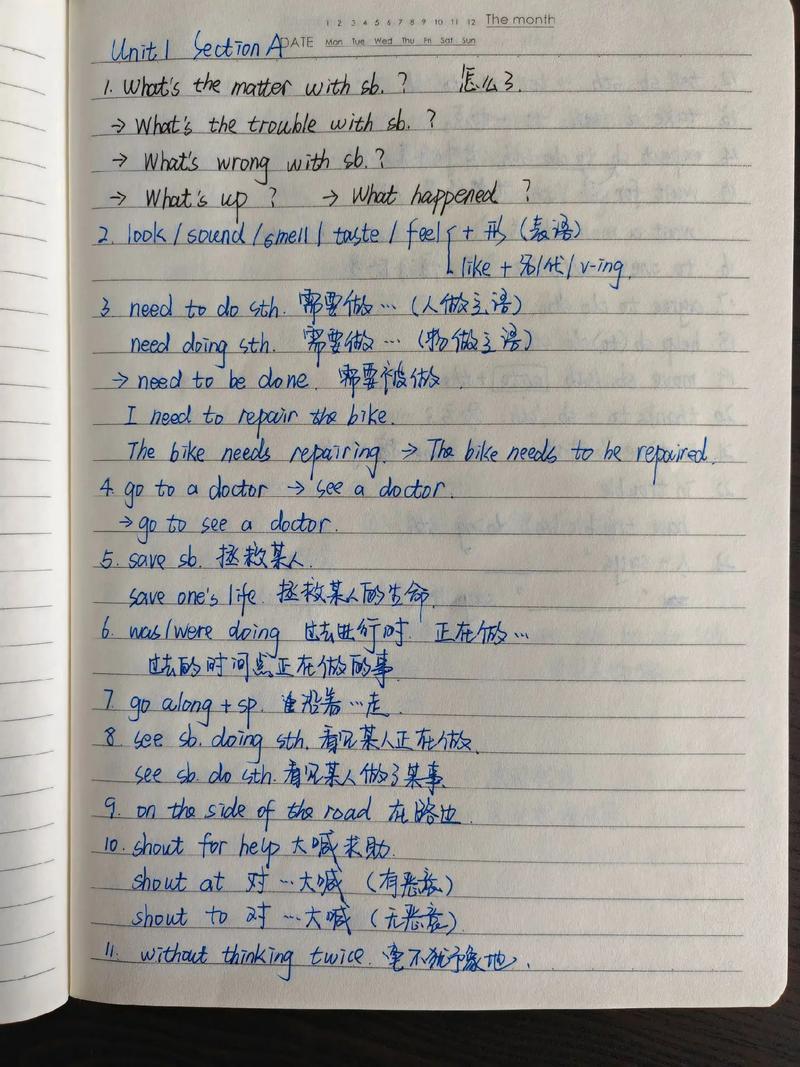 1 2 3 4 5 6 7 8 9 10 11 12 The month
DATE Mon Tue Wed Thu Fri Sat Sun
Unit 1 Section A
1. What's the matter with sb. ? 怎么了.
→ What's the trouble with sb. ?
→ What's wrong with sb. ?
→ What's up ? → What happened ?
2. look / sound / smell / taste / feel + 形 (表语)
like + 名/代/ v-ing.
3. need to do sth. 需要做… (人做主语)
need doing sth. 需要做… (物做主语)
→ need to be done. 需要被做
I need to repair the bike.
The bike needs repairing. → The bike needs to be repaired.
4. go to a doctor → see a doctor.
→ go to see a doctor.
5. save sb. 拯救某人.
save one's life. 拯救某人的生命.
6. was/were doing 过去进行时. 正在做…
过去的时间点正在做的事.
7. go along + sp. 沿着…走.
8. see sb. doing sth. 看见某人正在做.
see sb. do sth. 看见某人做了某事.
9. on the side of the road 在路边.
10. shout for help 大喊求助.
shout at 对…大喊 (有恶意)
shout to 对…大喊 (无恶意).
11. without thinking twice. 毫不犹豫地.